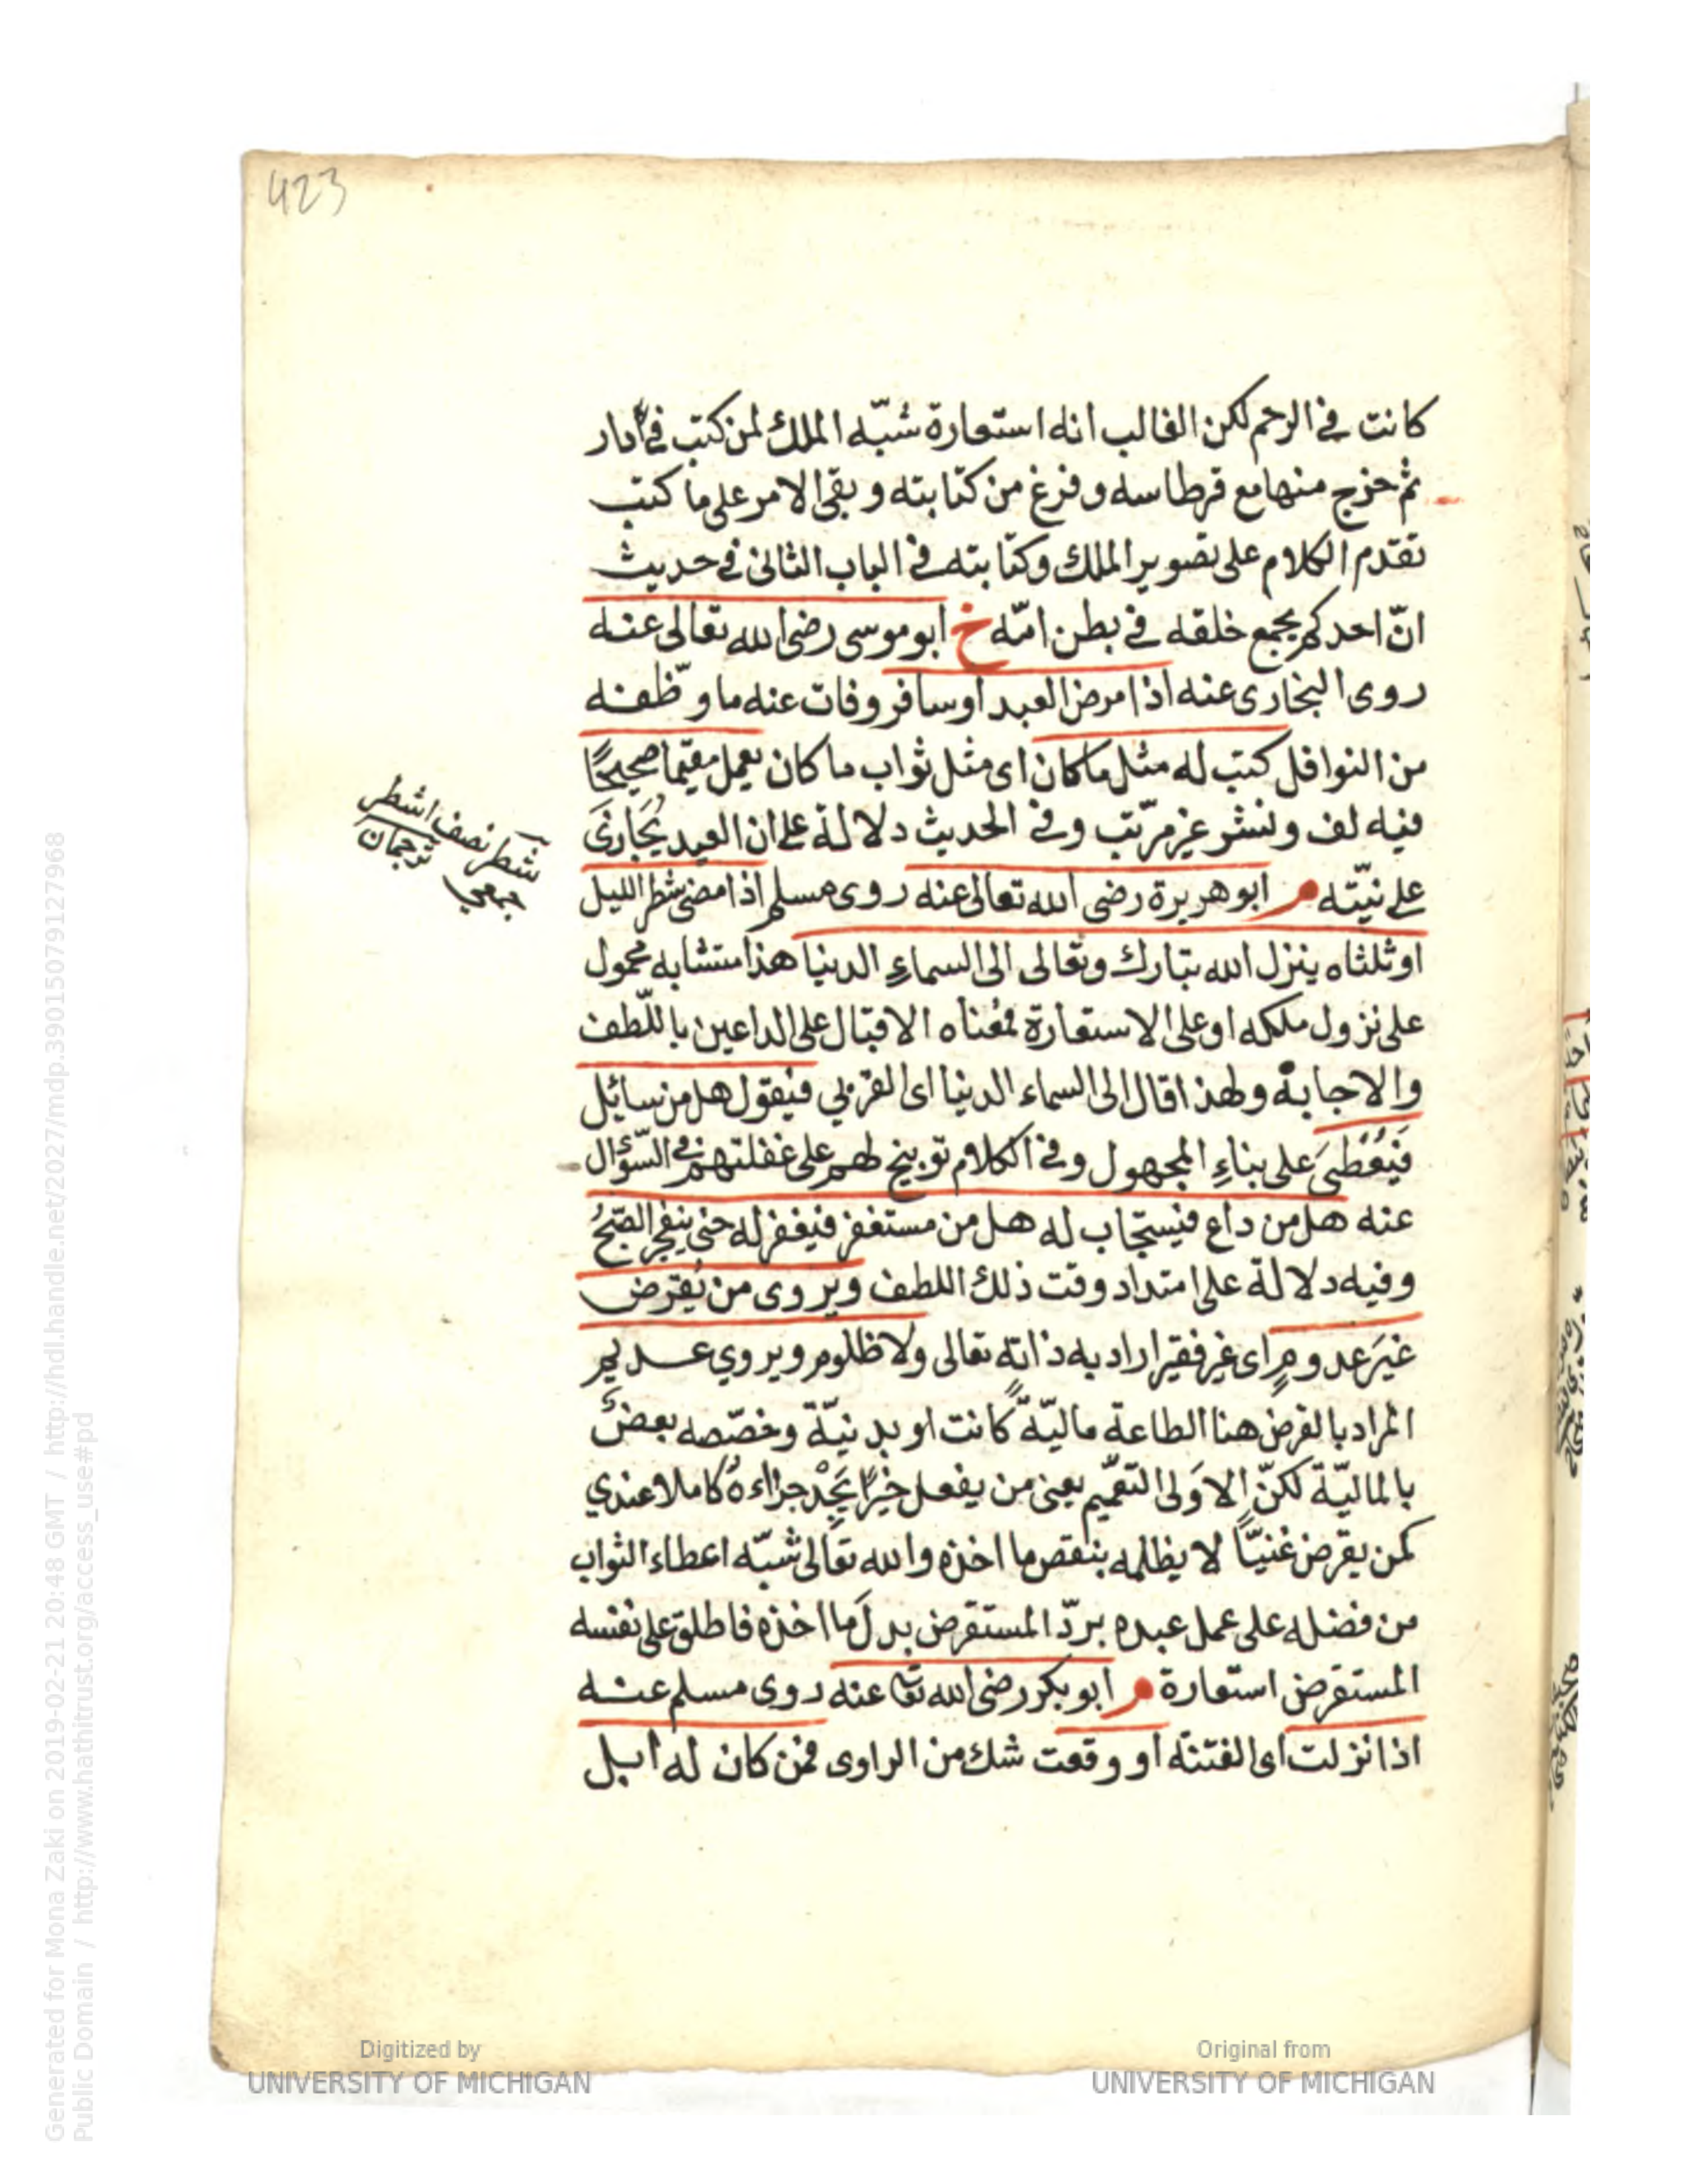 423
كانت في الرحم لكن الغالب انه استعارة شبّه الملك لمن كتب في دار
ثم خرج منها مع قرطاسه وفرغ من كتابته وبقى الامر على ما كتب
تقدم الكلام على تصوير الملك وكتابته في الباب الثانى في حديث
انّ احدكم يجمع خلقه في بطن امّه خ ابو موسى رضى الله تعالى عنه
روى البخارى عنه اذا مرض العبد او سافر وفات عنه ما وظّفه
من النوافل كتب له مثل ما كان اى مثل ثواب ما كان يعمل مقيما صحيحًا
فيه لف ونشر غير مرتّب وفي الحديث دلالة على ان العبد يُجَازَى
على نيّته م ابو هريرة رضى الله تعالى عنه روى مسلم اذا مضى شطر الليل
او ثلثاه ينزل الله تبارك وتعالى الى السماءِ الدنيا هذا متشابه محمول
على نزول ملكه او على الاستعارة فمعناه الاقبال على الداعين باللّطف
والاجابة ولهذا قال الى السماء الدنيا اى القربي فيقول هل من سائِل
فَيُعْطَىَ على بناءِ المجهول وفي الكلام توبيخ لهم على غفلتهم في السّؤال
عنه هل من داع فيستجاب له هل من مستغفر فيغفر له حتى ينفجر الصّبحُ
وفيه دلالة على امتداد وقت ذلك اللطف ويروى من يُقرض
غيَر عدومٍ اى غير فقير اراد به ذاته تعالى ولا ظلوم ويروي عديم
المراد بالقرض هنا الطاعة ماليّةً كانت او بدنيّة وخصّصه بعضٌ
بالماليّة لكنّ الاَولى التعميم يعنى من يفعل خيرًا يَجِدْ جزاءهُ كاملا عندي
كمن يقرض غنيّاً لا يظلمه بنقص ما اخذه والله تعالى شبّه اعطاء الثواب
من فضله على عمل عبده بردّ المستقرض بدلَ ما اخذه فاطلق على نفسه
المستقرض استعارة م ابو بكر رضى الله تعا عنه روى مسلم عنه
اذا نزلت اى الفتنة او وقعت شك من الراوى فمن كان له ابل
شطر نصف اشطر
جمعي ترجمان
Digitized by
UNIVERSITY OF MICHIGAN
Original from
UNIVERSITY OF MICHIGAN
Generated for Mona Zaki on 2019-02-21 20:48 GMT / http://hdl.handle.net/2027/mdp.39015079127968
Public Domain / http://www.hathitrust.org/access_use#pd